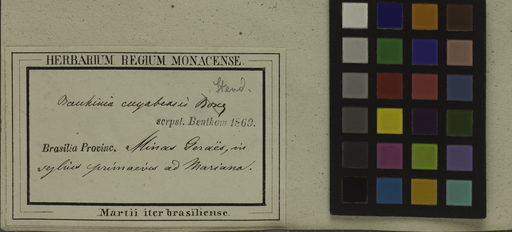 HERBARIUM REGIUM MONACENSE.
Steud.
Bauhinia cuyabensis Bong
scrpst. Bentham 1869.
Brasilia Provinc. Minas Geraës, in
sylvis primaevis ad Mariana.
Martii iter brasiliense.